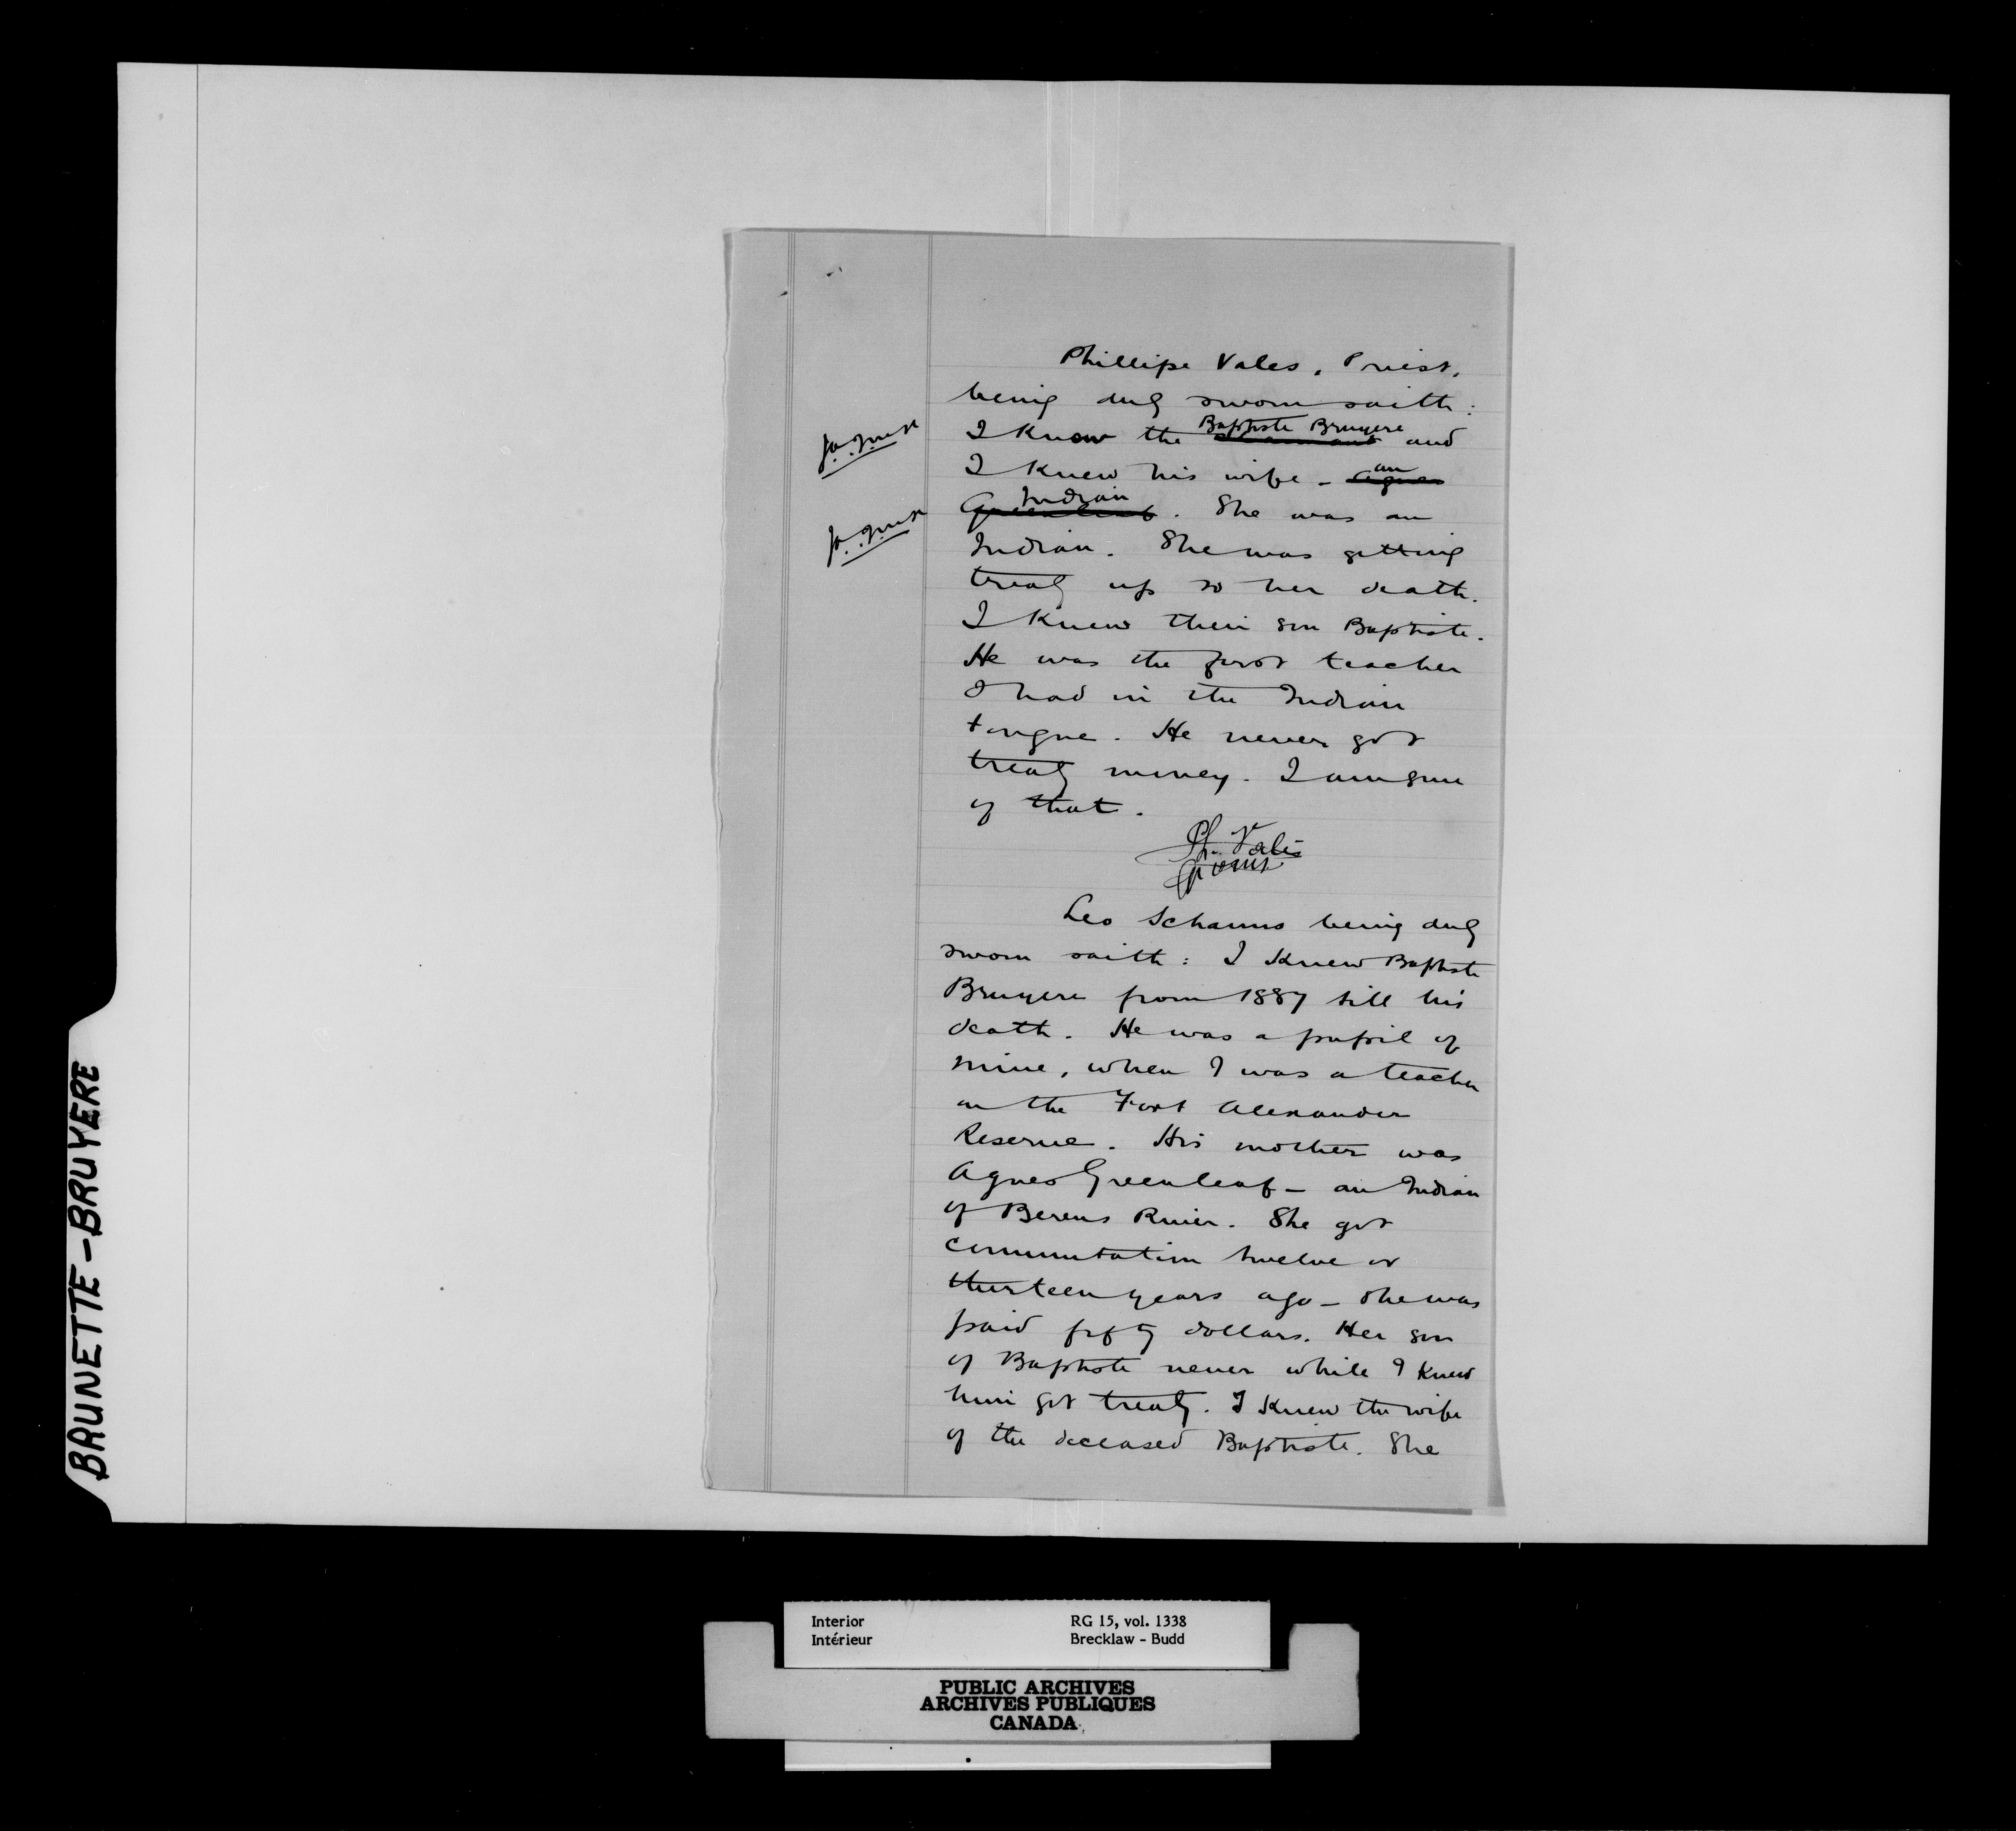 Phillipe Vales, Priest,
being duly sworn saith:
I know the Baptiste Bruyere and
I knew his wife - an Agnes
Indian Greenleaf. She was an
Indian. She was getting
treaty up to her death.
I knew their son Baptiste.
He was the first teacher
I had in the Indian
tongue. He never got
treaty money. I am sure
of that.
Ph. Valès
Leo Schanus being duly
sworn saith: I knew Baptiste
Bruyere from 1887 till his
death. He was a pupil of
mine, when I was a teacher
on the Fort Alexander
Reserve. His mother was
Agnes Greenleaf - an Indian
of Berens River. She got
commutation twelve or
thirteen years ago - she was
paid fifty dollars. Her son
of Baptiste never while I knew
him got treaty. I knew the wife
of the deceased Baptiste. She
BRUNETTE-BRUYERE
Interior RG 15, vol. 1338
Intérieur Brecklaw - Budd
PUBLIC ARCHIVES
ARCHIVES PUBLIQUES
CANADA